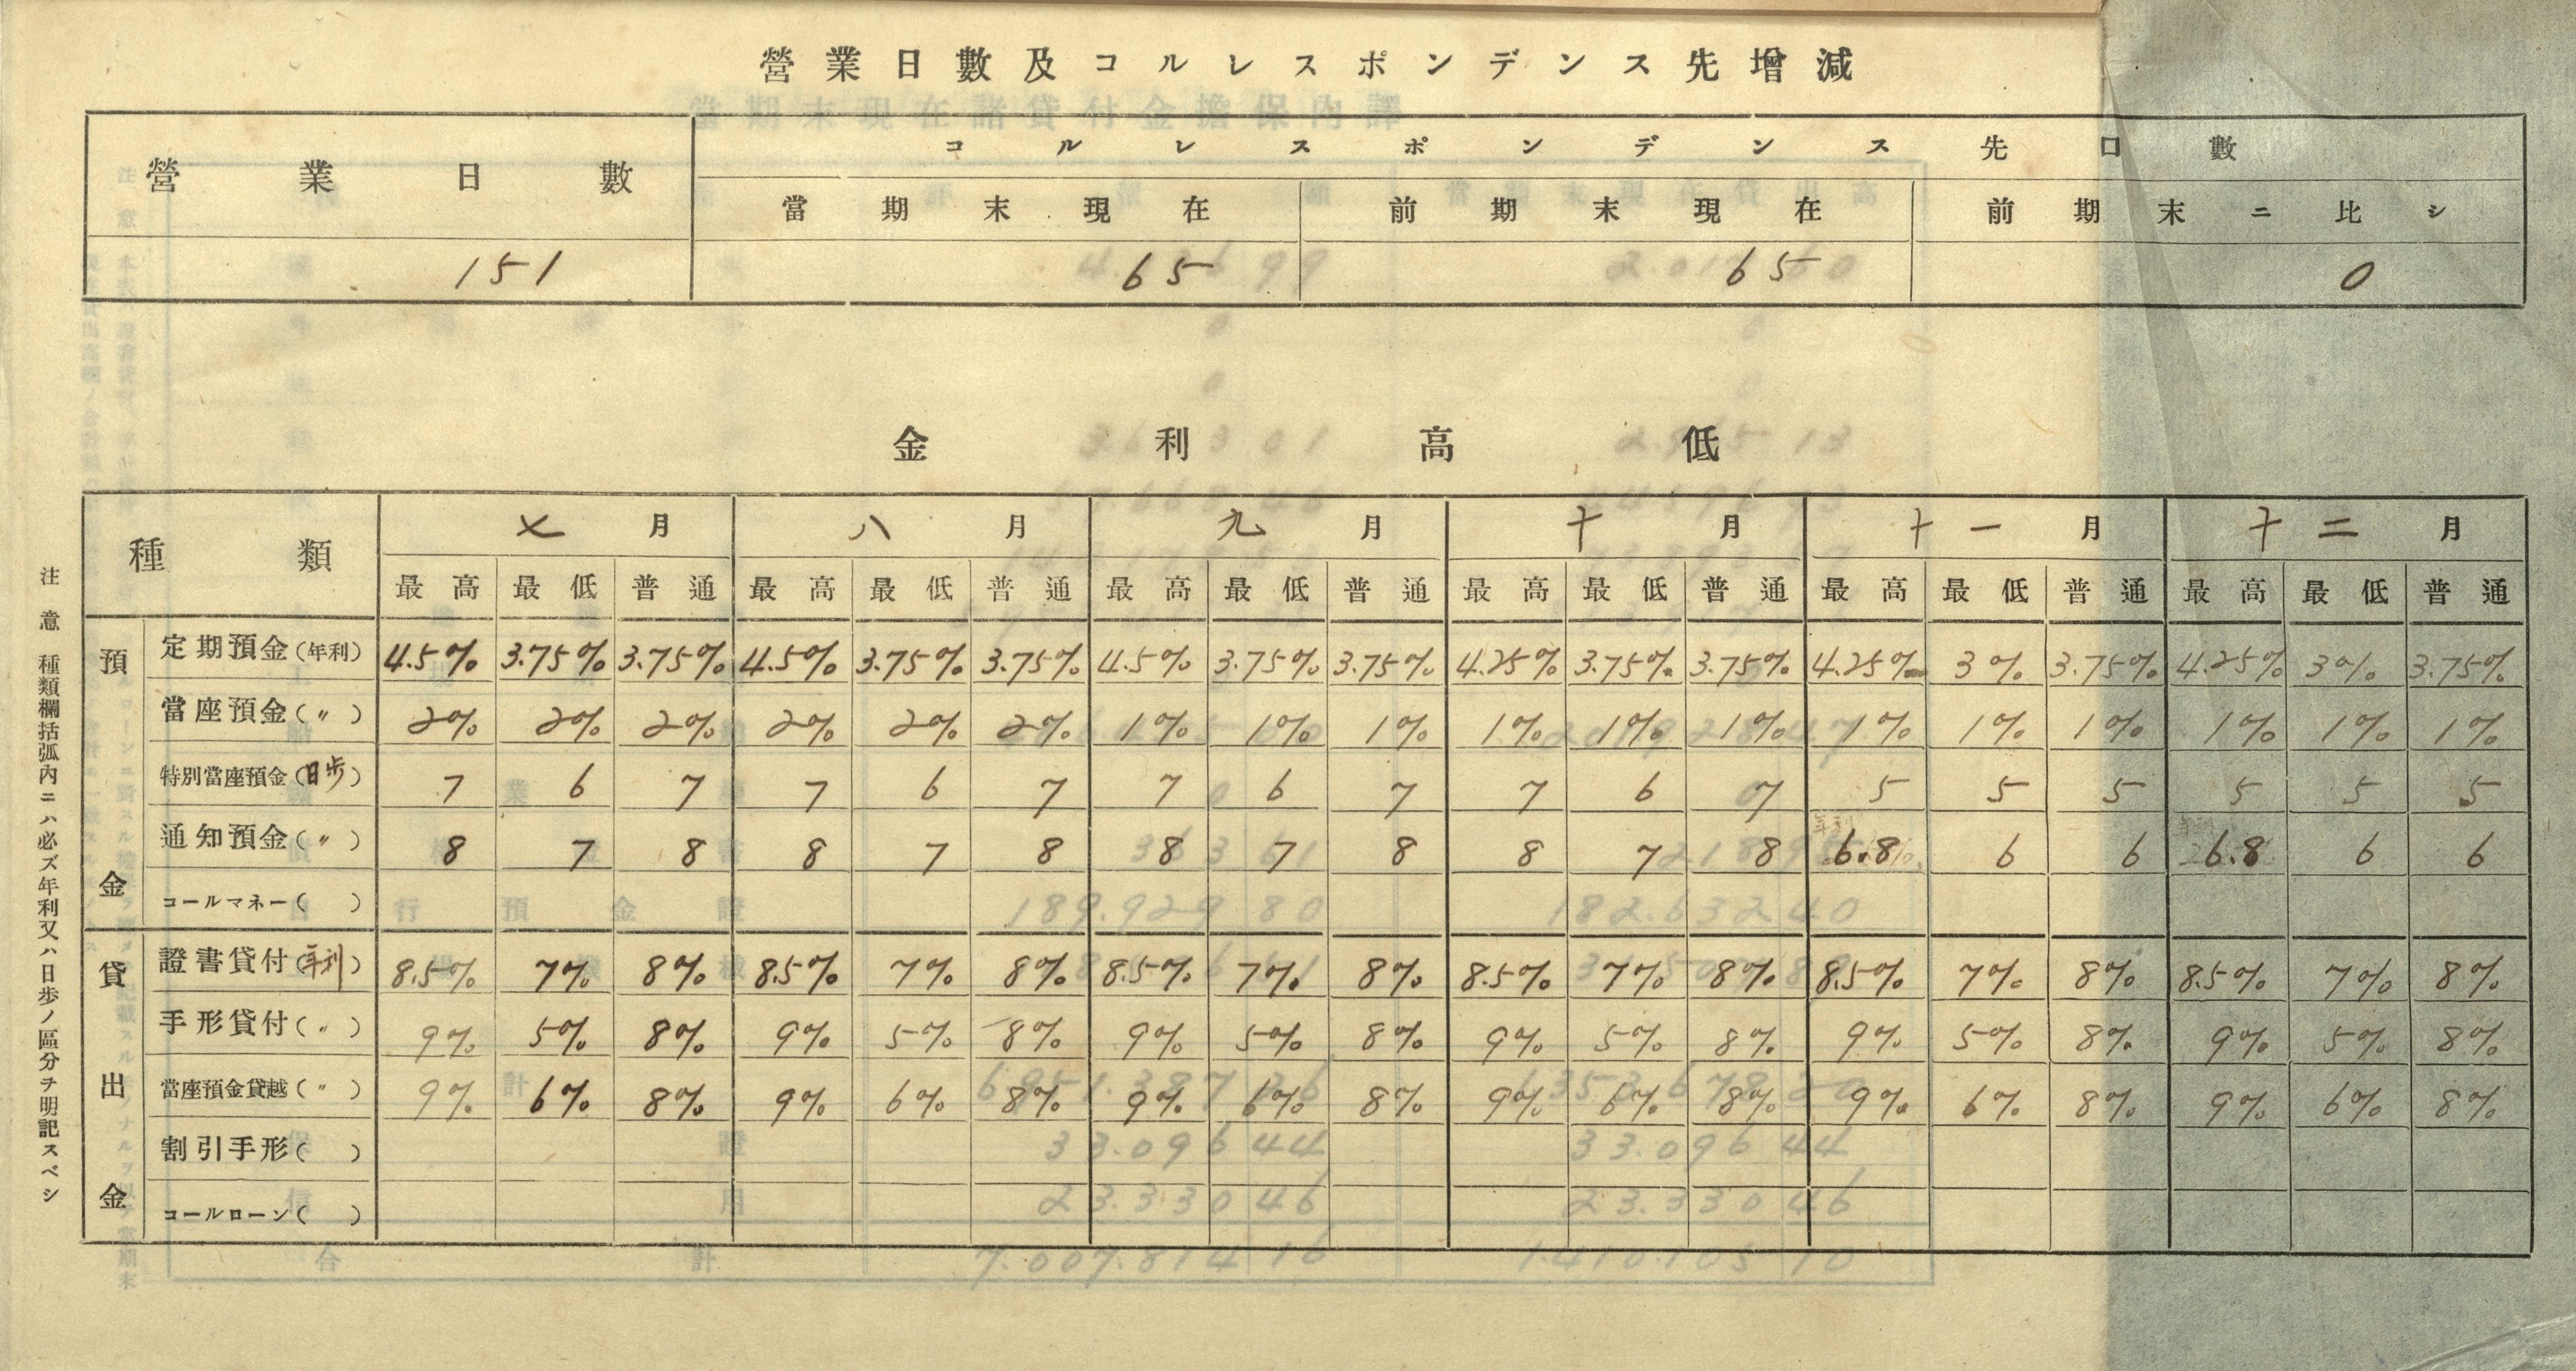 營業日數及コルレスポンデンス先增減
營業日數 コルレスポンデンス先口數
當期末現在 前期末現在 前期末ニ比シ
151 65 65 0
金利高低
種類 七月 八月 九月 十月 十一月 十二月
最高 最低 普通 最高 最低 普通 最高 最低 普通 最高 最低 普通 最高 最低 普通 最高 最低 普通
預金
定期預金(年利) 4.5% 3.75% 3.75% 4.5% 3.75% 3.75% 4.5% 3.75% 3.75% 4.25% 3.75% 3.75% 4.25% 3% 3.75% 4.25% 3% 3.75%
當座預金(〃) 2% 2% 2% 2% 2% 2% 1% 1% 1% 1% 1% 1% 1% 1% 1% 1% 1% 1%
特別當座預金(日歩) 7 6 7 7 6 7 7 6 7 7 6 7 5 5 5 5 5 5
通知預金(〃) 8 7 8 8 7 8 8 7 8 8 7 8 6.8 6 6 6.8 6 6
コールマネー( )
貸出金
證書貸付(年利) 8.5% 7% 8% 8.5% 7% 8% 8.5% 7% 8% 8.5% 7% 8% 8.5% 7% 8% 8.5% 7% 8%
手形貸付(〃) 9% 5% 8% 9% 5% 8% 9% 5% 8% 9% 5% 8% 9% 5% 8% 9% 5% 8%
當座預金貸越(〃) 9% 6% 8% 9% 6% 8% 9% 6% 8% 9% 6% 8% 9% 6% 8% 9% 6% 8%
割引手形( )
コールローン( )
注意 種類欄括弧内ニハ必ズ年利又ハ日歩ノ區分ヲ明記スベシ